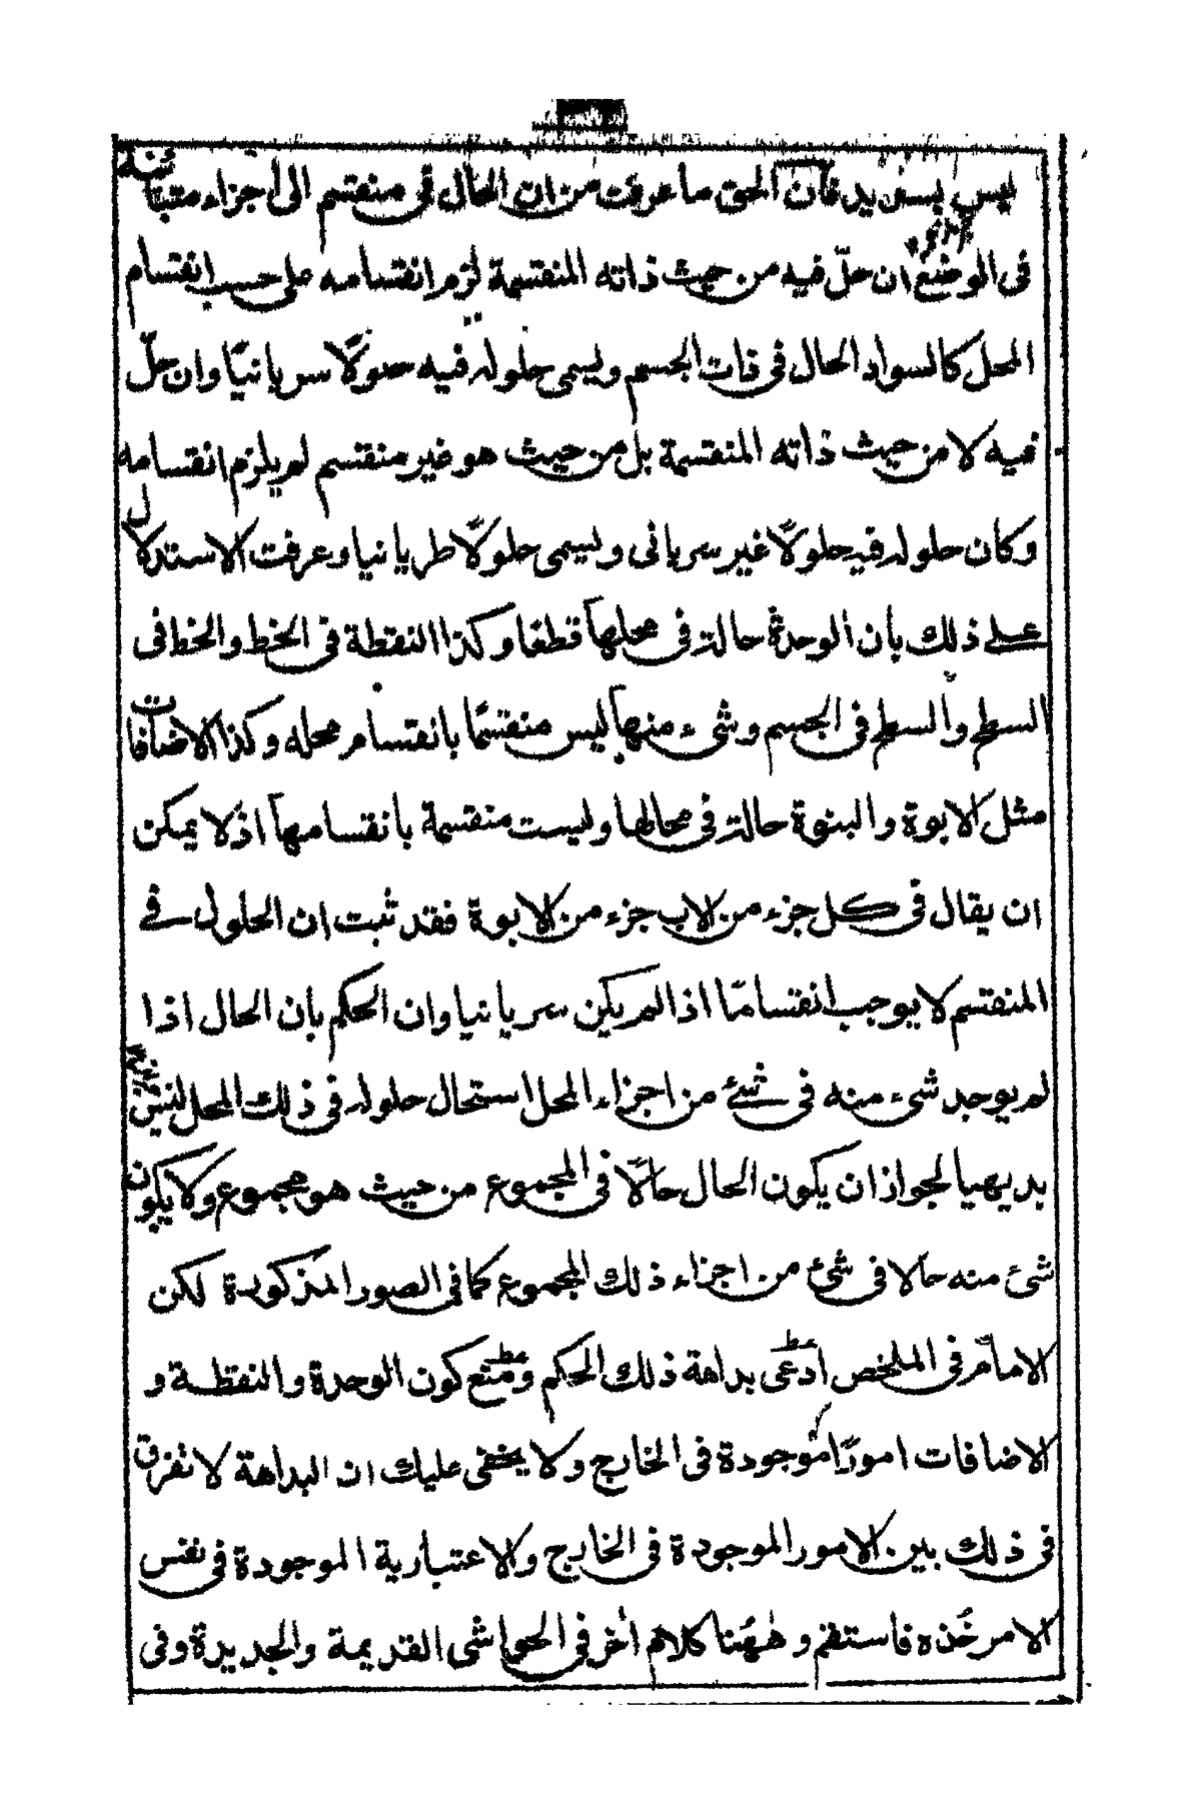 ليس بسديد فان الحق ما عرفت من ان الحال فى منقسم الى اجزاء متباينة
فى الوضع ان حلّ فيه من حيث ذاته المنقسمة لزم انقسامه على حسب انقسام
المحل كالسواد الحال فى ذات الجسم ويسمى حلوله فيه حلولًا سريانيًا وان حلّ
فيه لا من حيث ذاته المنقسمة بل من حيث هو غير منقسم لم يلزم انقسامه
وكان حلوله فيه حلولًا غير سريانى ويسمى حلولًا طريانيا وعرفت الاستدلال
على ذلك بان الوحدة حالة فى محلها قطعا وكذا النقطة فى الخط والخط فى
السطح والسطح فى الجسم وشىء منها ليس منقسمًا بانقسام محله وكذا الاضافات
مثل الابوة والبنوة حالة فى محالها وليست منقسمة بانقسامها اذ لا يمكن
ان يقال فى كل جزء من الاب جزء من الابوة فقد ثبت ان الحلول فى
المنقسم لا يوجب انقساما اذا لم يكن سريانيا وان الحكم بان الحال اذا
لم يوجد شىء منه فى شئ من اجزاء المحل استحال حلوله فى ذلك المحل ليس
بديهيا لجواز ان يكون الحال حالًا فى المجموع من حيث هو مجموع ولا يكون
شئ منه حالا فى شئ من اجزاء ذلك المجموع كما فى الصور المذكورة لكن
الامام فى الملخص ادعى بداهة ذلك الحكم ومنع كون الوحدة والنقطة و
الاضافات امورًا موجودة فى الخارج ولا يخفى عليك ان البداهة لا تفرق
فى ذلك بين الامور الموجودة فى الخارج والاعتبارية الموجودة فى نفس
الامر خذه فاستقم وههنا كلام اخر فى الحواشى القديمة والجديدة وفى